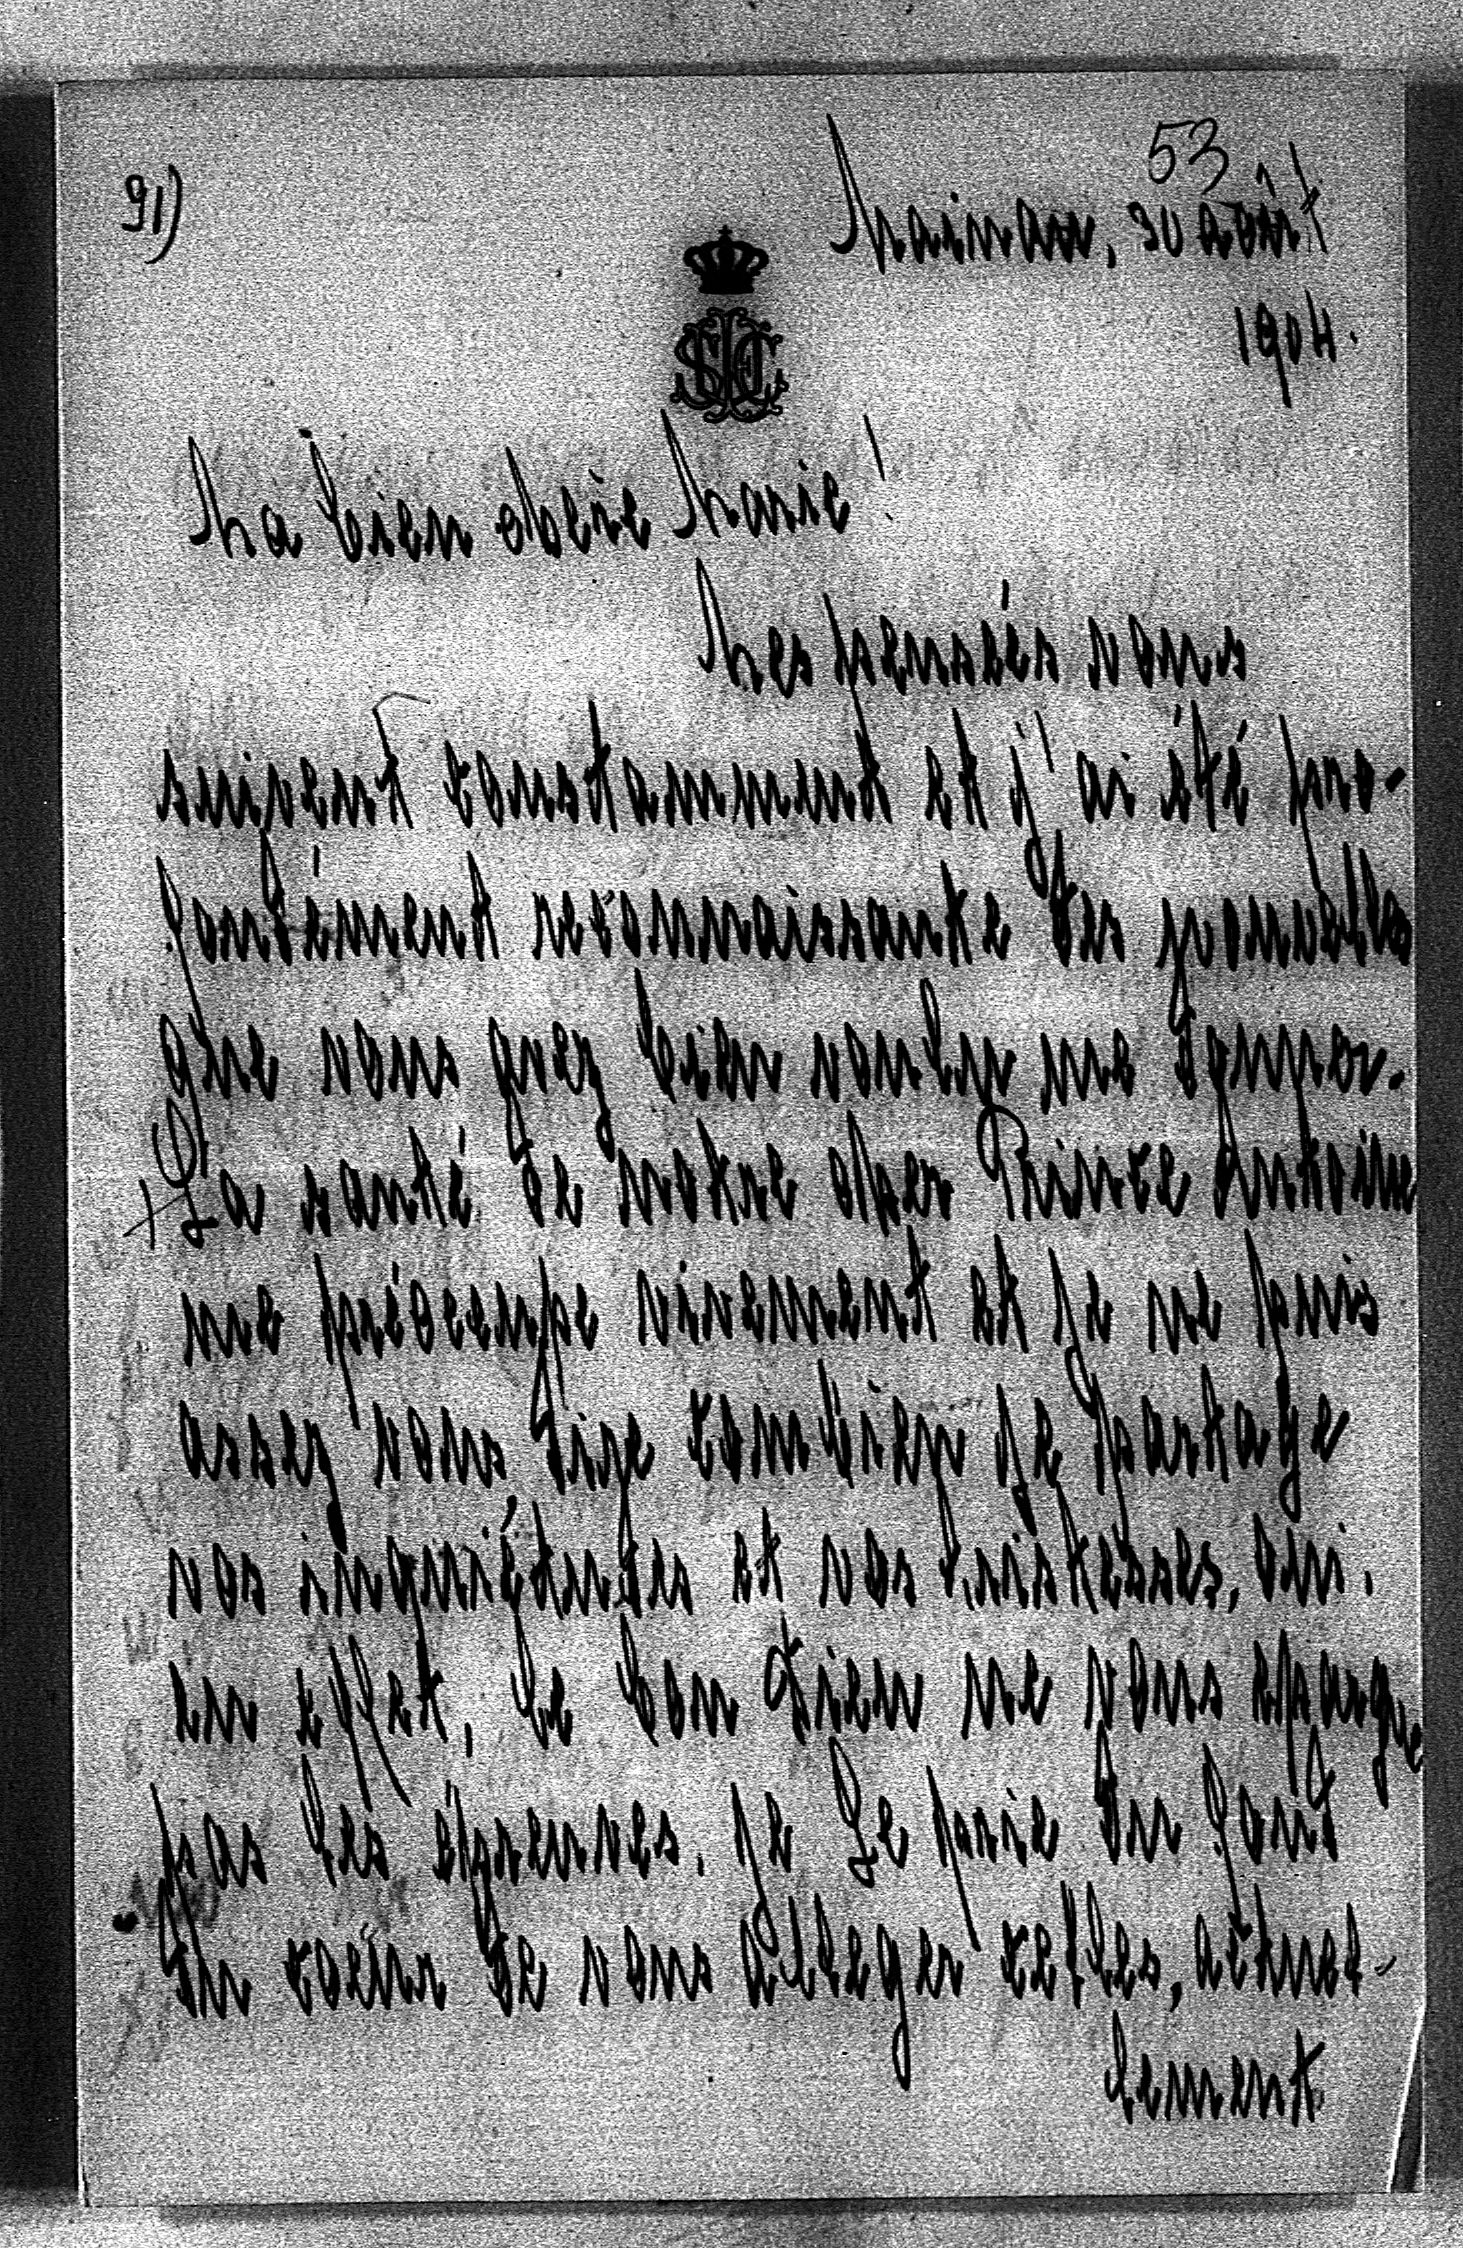 53
91)
Mainau, 20 août
1904.
Ma bien chère Marie!
Mes pensées vous
suivent constamment et j'ai été pro-
fondément reconnaissante des nouvelles
que vous avez bien voulu me donner.
+ La santé de notre cher Prince Antoine
me préoccupe vivement et je ne puis
assez vous dire combien je partage
vos inquiétudes et vos tristesses, oui,
en effet, le bon Dieu ne vous épargne
pas les épreuves. Je Le prie du fond
du coeur de vous alléger celles, actuel-
lement